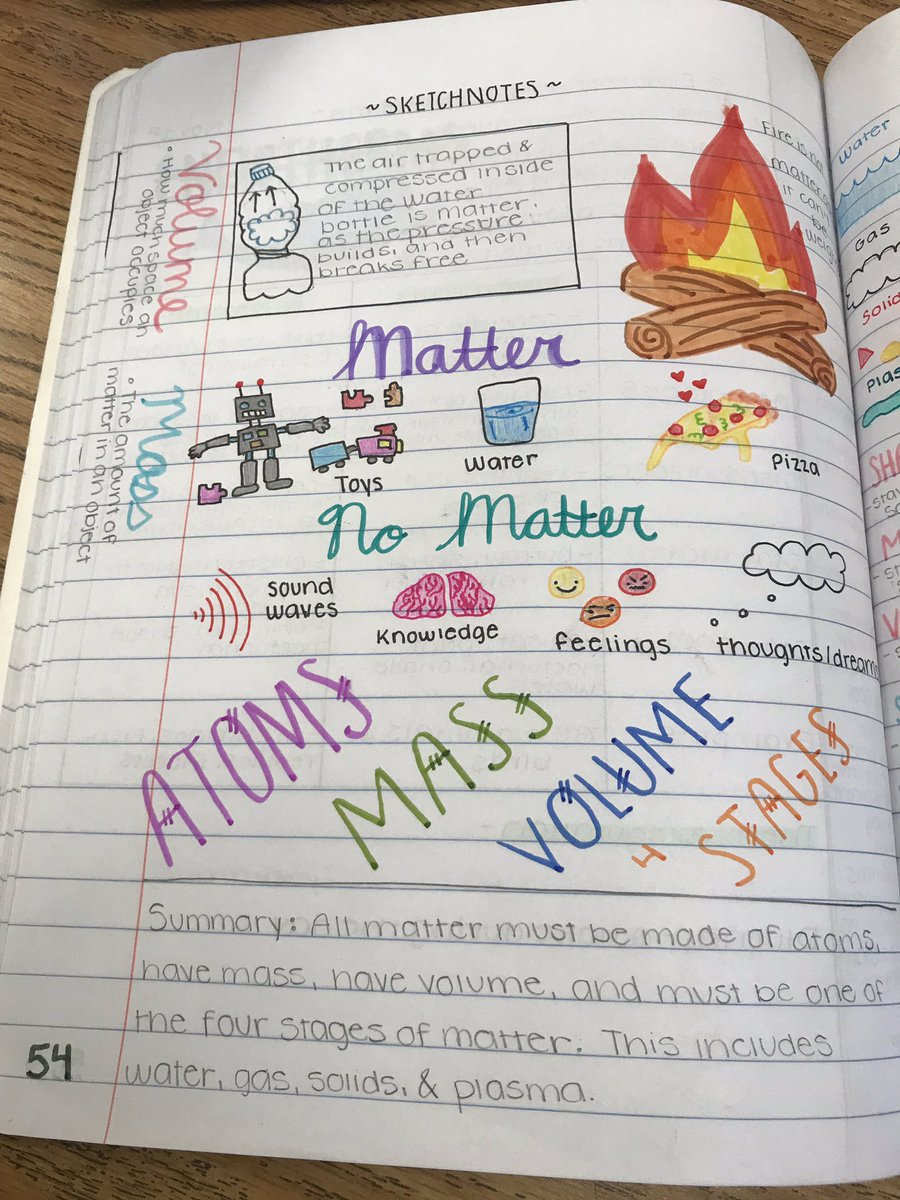 ~ SKETCHNOTES ~
Volume
• How much space an
object occupies
The air trapped &
compressed inside
of the water
bottle is matter,
as the pressure
builds, and then
breaks free
Fire is
matter
it can
be
Matter
Mass
• The amount of
matter in an object
Toys
Water
Pizza
No Matter
sound
waves
Knowledge
feelings
thoughts/dreams
ATOMS
MASS
VOLUME
4 STAGES
Summary: All matter must be made of atoms,
have mass, have volume, and must be one of
the four stages of matter. This includes
water, gas, solids, & plasma.
54
water
Gas
Solid